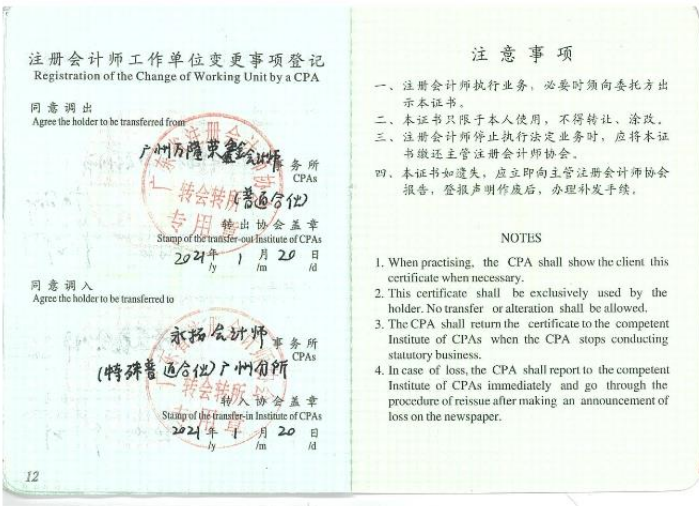 注册会计师工作单位变更事项登记
Registration of the Change of Working Unit by a CPA
同意调出
Agree the holder to be transferred from
广州万隆荣鑫会计师事务所
CPAs
(普通合伙)
转会转所
专用章
转出协会盖章
Stamp of the transfer-out Institute of CPAs
2021年 1月 20日
/y /m /d
同意调入
Agree the holder to be transferred to
永拓会计师事务所
CPAs
(特殊普通合伙)广州分所
转会转所
转入协会盖章
Stamp of the transfer-in Institute of CPAs
2021年 1月 20日
/y /m /d
12
注意事项
一、注册会计师执行业务，必要时须向委托方出
示本证书。
二、本证书只限于本人使用，不得转让、涂改。
三、注册会计师停止执行法定业务时，应将本证
书缴还主管注册会计师协会。
四、本证书如遗失，应立即向主管注册会计师协会
报告，登报声明作废后，办理补发手续。
NOTES
1. When practising, the CPA shall show the client this
certificate when necessary.
2. This certificate shall be exclusively used by the
holder. No transfer or alteration shall be allowed.
3. The CPA shall return the certificate to the competent
Institute of CPAs when the CPA stops conducting
statutory business.
4. In case of loss, the CPA shall report to the competent
Institute of CPAs immediately and go through the
procedure of reissue after making an announcement of
loss on the newspaper.